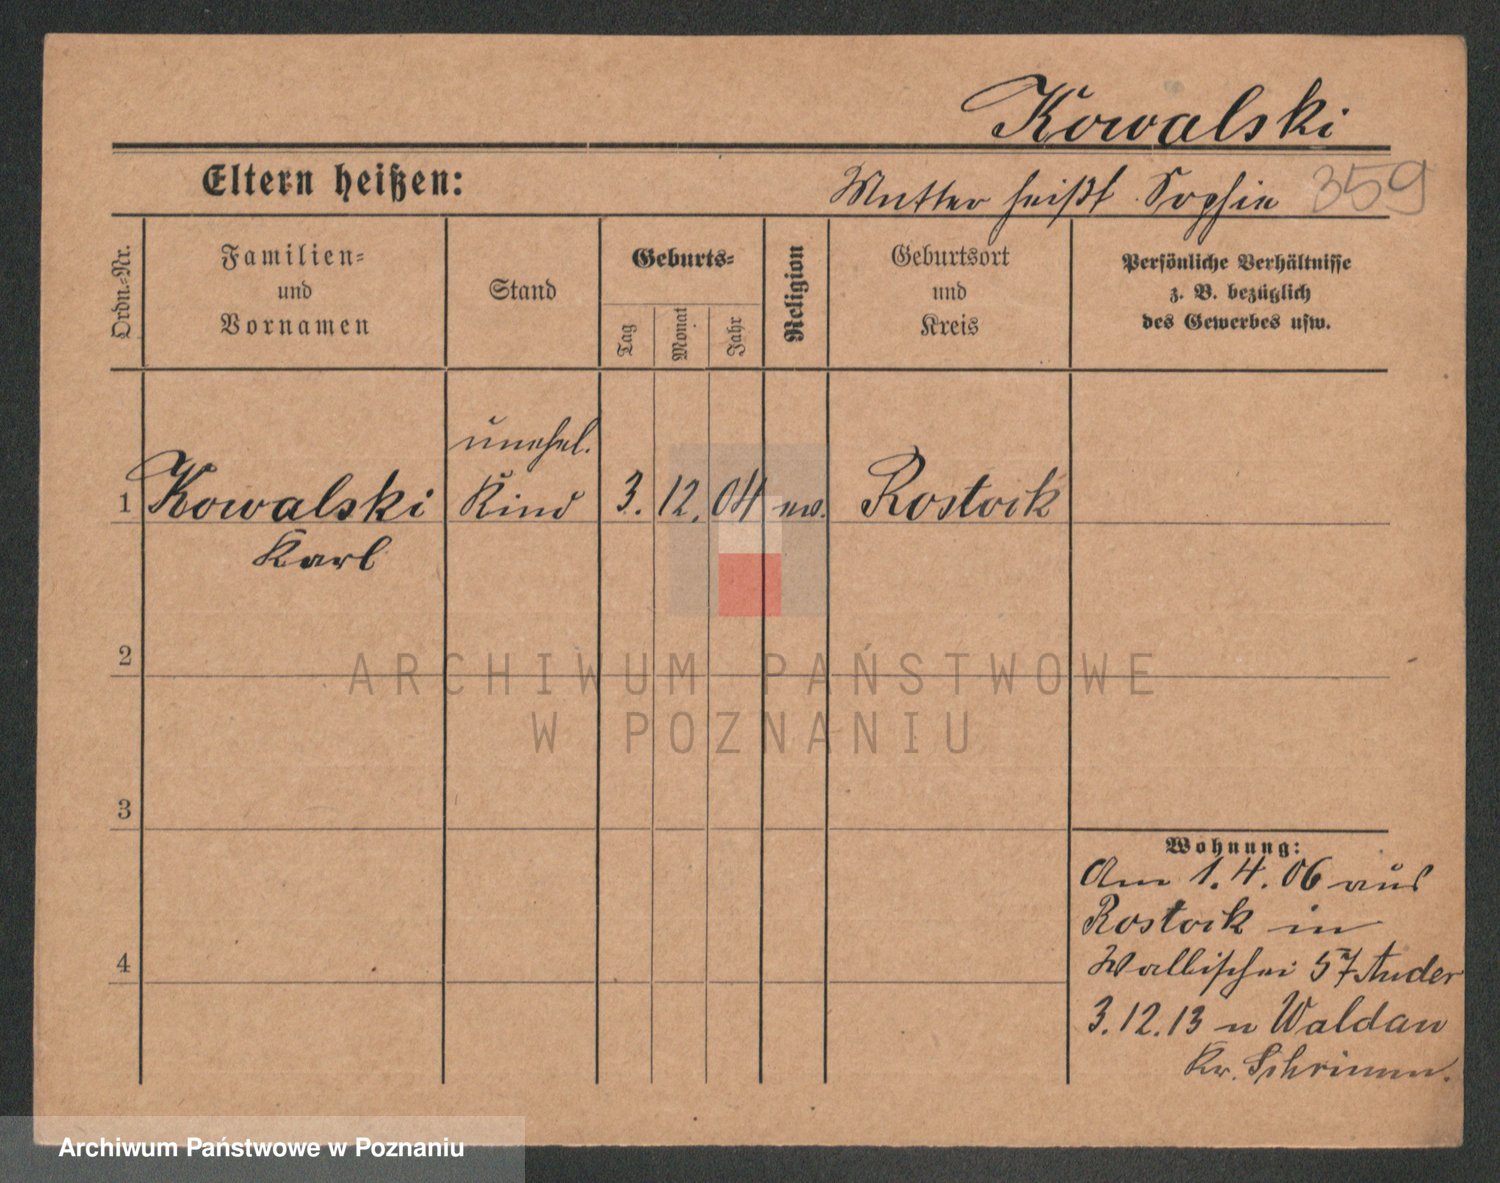 Kowalski
Eltern heißen: Mutter heißt Sophie 359
Ordn.-Nr.
Familien-
und
Vornamen
Stand
Geburts-
Tag
Monat
Jahr
Religion
Geburtsort
und
Kreis
Persönliche Verhältnisse
z. B. bezüglich
des Gewerbes usw.
unehel.
1 Kowalski Kind 3. 12. 04 ev. Rostock
Karl
2
ARCHIWUM PAŃSTWOWE
W POZNANIU
3
Wohnung:
Am 1.4.06 aus
Rostock in
Wallischei 57
3.12.13 n Waldau
4
Kr. Schrimm.
Archiwum Państwowe w Poznaniu